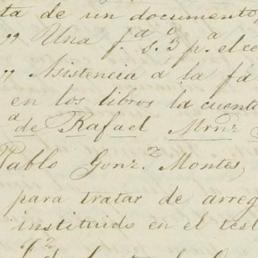 ta de un documento,
" Una f.ª s. 3 p.ª el ce
" Asistencia a la fa
en los libros la cuenta
ª de Rafael Mrnz
Pablo Gonz.z Montes,
para tratar de arreg
instituido en el test